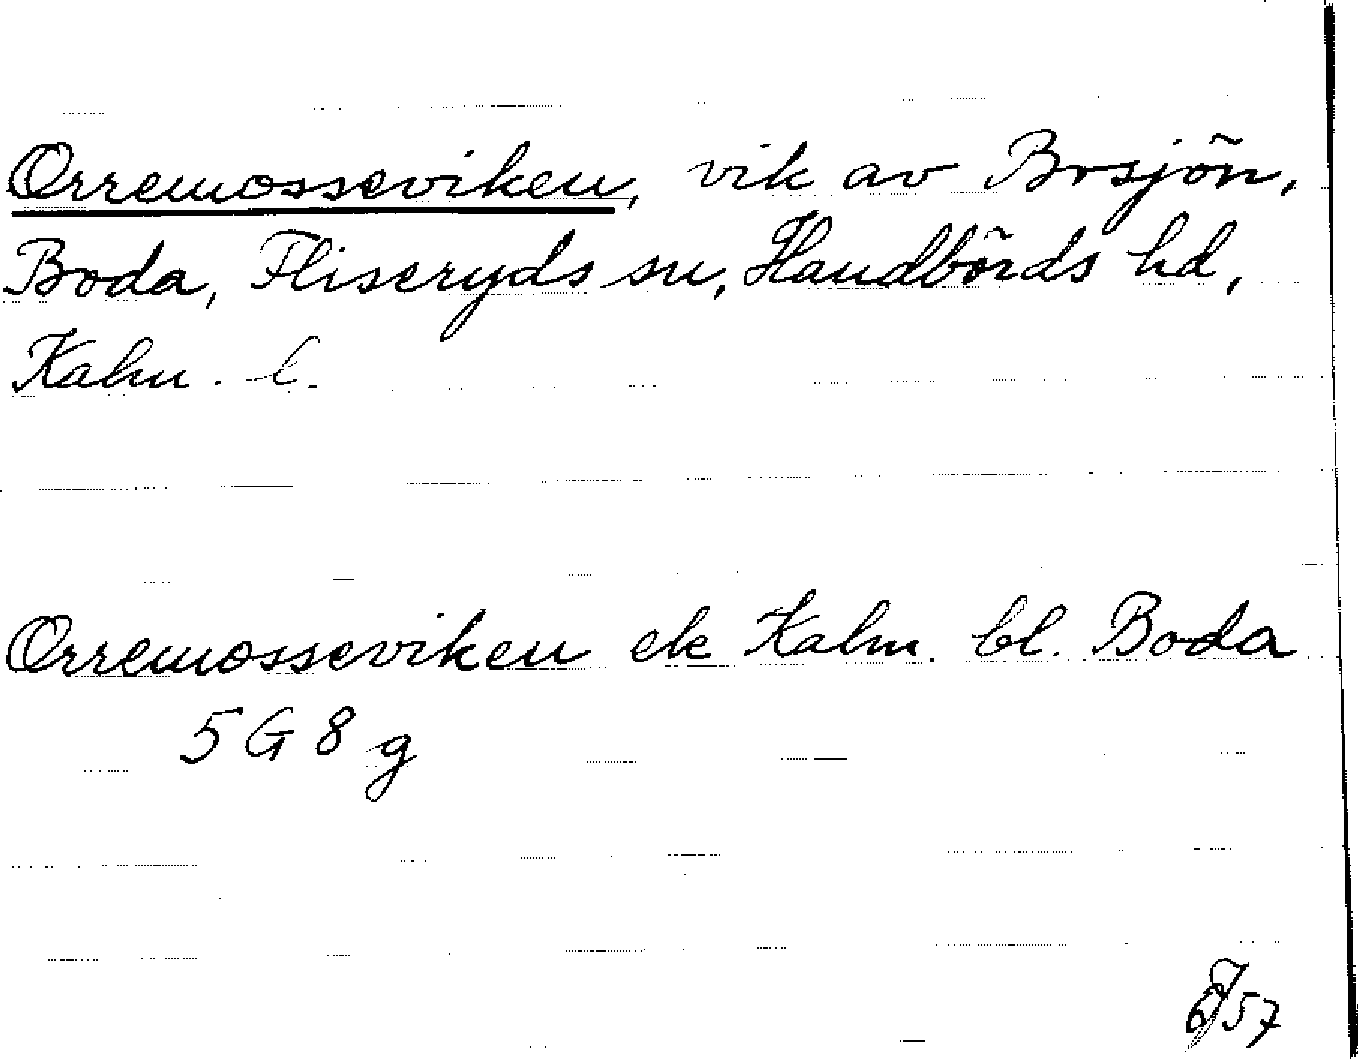 Orremosseviken, vik av Bosjön,
Boda, Fliseryds sn, Handbörds hd,
Kalm. l.
Orremosseviken ek Kalm. bl. Boda
5 G 8 g
57